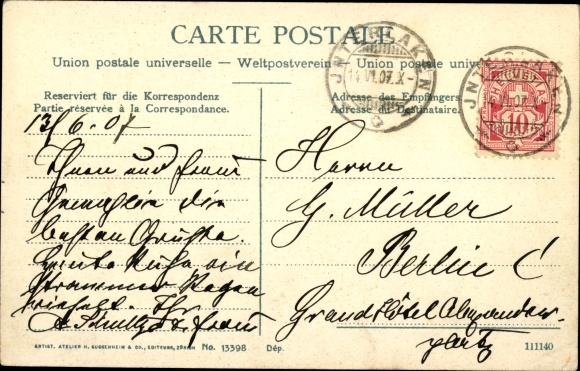 CARTE POSTALE
Union postale universelle — Weltpostverein — Union postale universelle
Reserviert für die Korrespondenz
Partie réservée à la Correspondance.
Adresse des Empfängers.
Adresse du Destinataire.
JNTERLAKEN
14.VI.07.X-
JNTERLAKEN
HELVETIA
10
13/6. 07
Ihnen und Frau
Gemahlin die
besten Grüße.
Heute
Regen
Ihr
& Frau
Herrn
G. Müller
Berlin C
Grand Hôtel Alexander-
platz
ARTIST. ATELIER H. GUGGENHEIM & CO., EDITEURS, ZÜRICH No. 13398 Dép. 111140